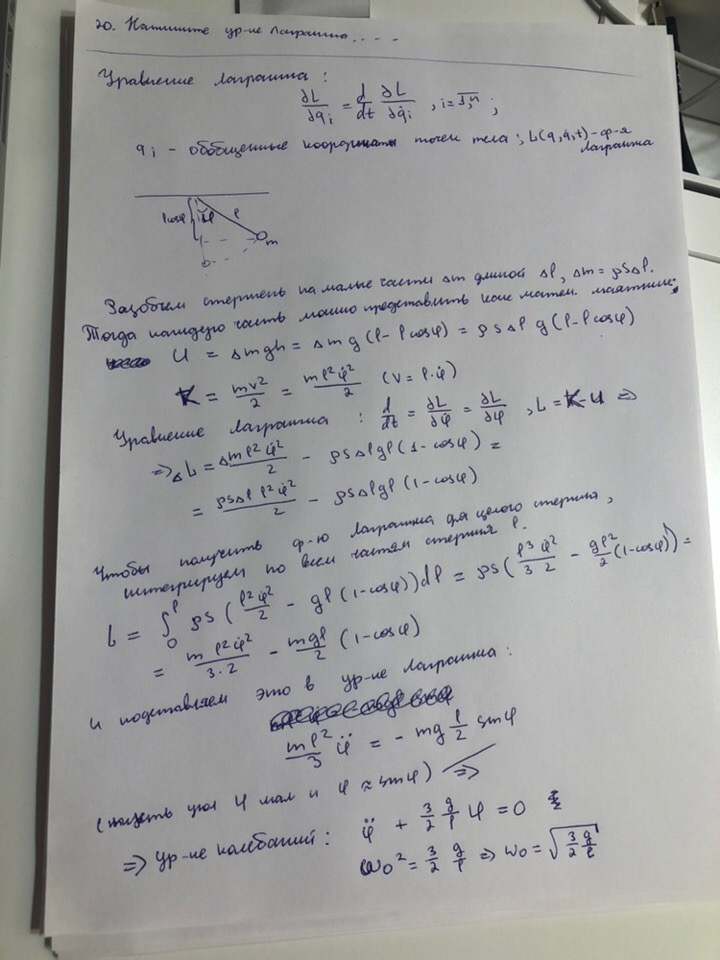 20. Напишите ур-ие Лагранжа....
Уравнение Лагранжа :
∂L/∂qᵢ = d/dt ∂L/∂q̇ᵢ , i = 1,n ;
qᵢ - обобщенные координаты точек тела ; L(q, q̇, t) - ф-я
Лагранжа
lcosφ φ l
m
Разобьем стержень на малые части Δm длиной Δl, Δm = ρSΔl.
Тогда каждую часть можно представить как матем. маятник:
U = Δmgh = Δmg(l - lcosφ) = ρSΔl g(l - lcosφ)
K = mv²/2 = ml²φ̇²/2 (v = l·φ̇)
Уравнение Лагранжа : d/dt = ∂L/∂φ̇ = ∂L/∂φ , L = K - U =>
=> ΔL = Δml²φ̇²/2 - ρSΔlgl(1 - cosφ) =
= ρSΔl l²φ̇²/2 - ρSΔlgl(1 - cosφ)
Чтобы получить ф-ю Лагранжа для целого стержня,
интегрируем по всем частям стержня l.
L = ∫₀ˡ ρS(l²φ̇²/2 - gl(1 - cosφ))dl = ρS(l³/3 φ̇²/2 - gl²/2 (1 - cosφ)) =
= ml²φ̇²/3·2 - mgl/2 (1 - cosφ)
и подставляем это в ур-ие Лагранжа :
ml²/3 φ̈ = - mg l/2 sinφ
(пусть угол φ мал и φ ≈ sinφ) =>
=> ур-ие колебаний : φ̈ + 3/2 g/l φ = 0
ω₀² = 3/2 g/l => ω₀ = √(3/2 g/l)